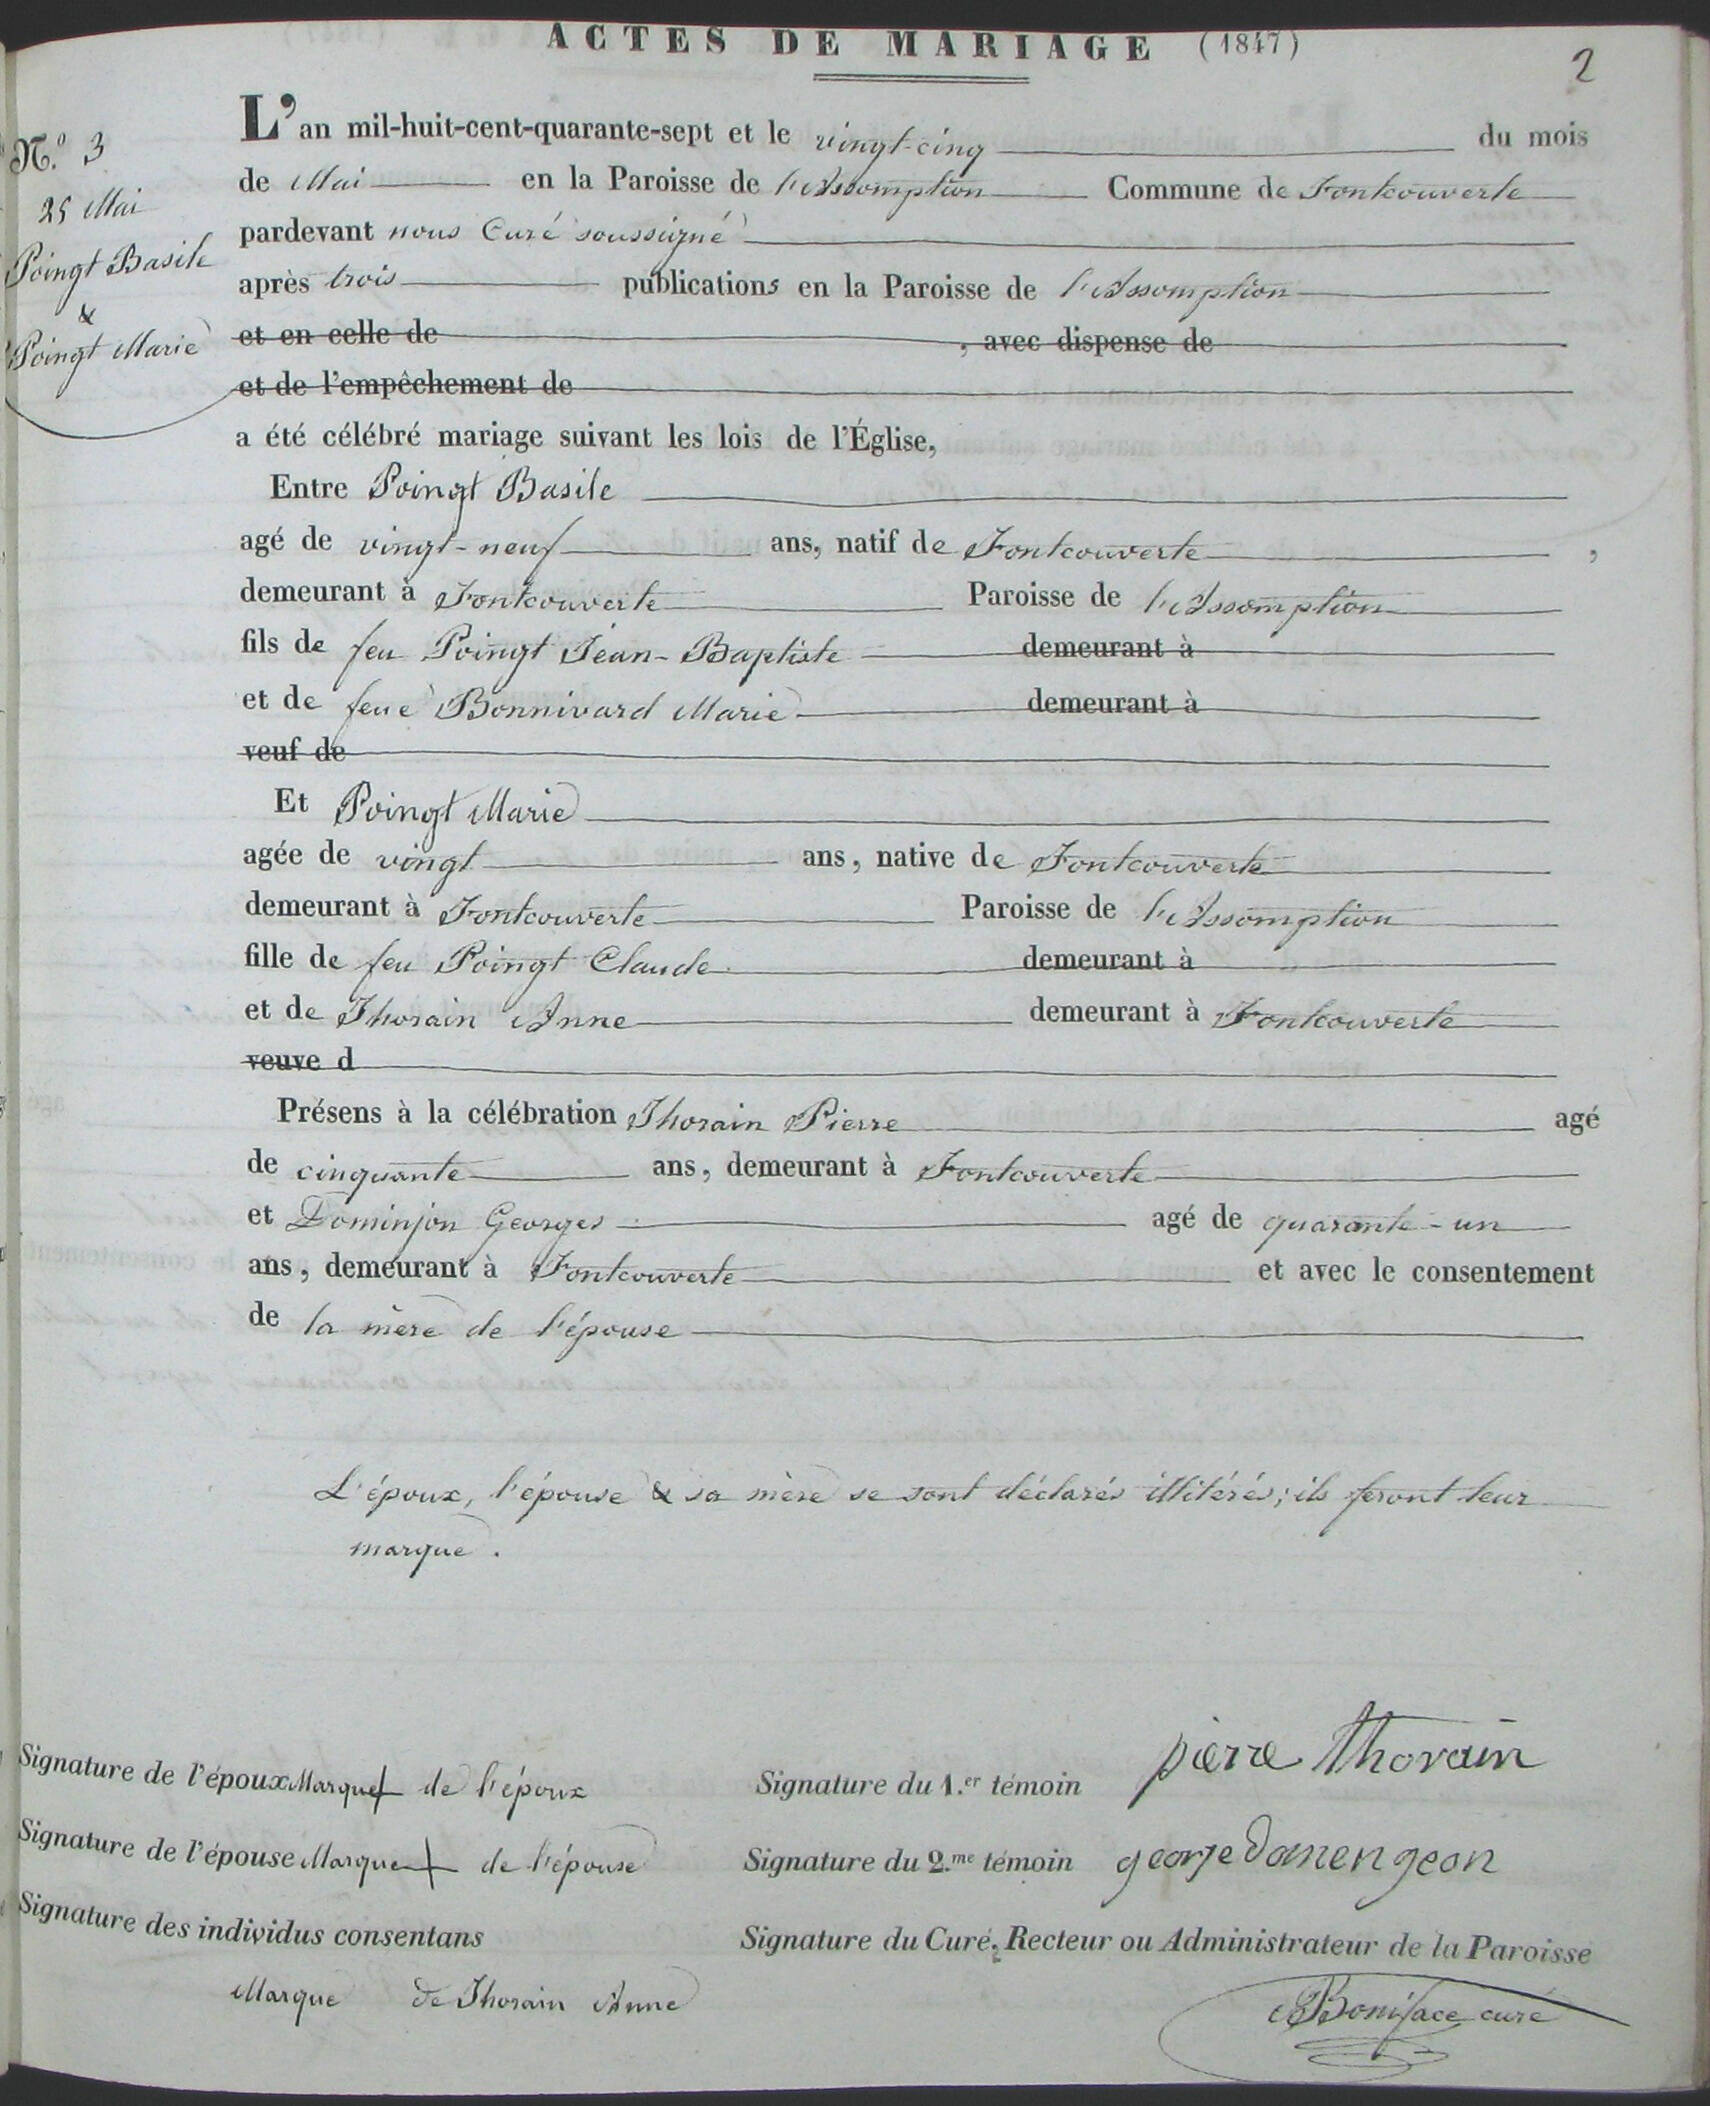 ACTES DE MARIAGE (1847)
2
N.o 3
25 Mai
Poingt Basile
&
Poingt Marie
L'an mil-huit-cent-quarante-sept et le vingt-cinq du mois
de Mai en la Paroisse de l'Assomption Commune de Fontcouverte
pardevant nous Curé soussigné
après trois publications en la Paroisse de l'Assomption
et en celle de , avec dispense de
et de l'empêchement de
a été célébré mariage suivant les lois de l'Église,
Entre Poingt Basile
agé de vingt-neuf ans, natif de Fontcouverte ,
demeurant à Fontcouverte Paroisse de l'Assomption
fils de feu Poingt Jean-Baptiste demeurant à
et de feue Bonnivard Marie demeurant à
veuf de
Et Poingt Marie
agée de vingt ans, native de Fontcouverte
demeurant à Fontcouverte Paroisse de l'Assomption
fille de feu Poingt Claude demeurant à
et de Thorain Anne demeurant à Fontcouverte
veuve d
Présens à la célébration Thorain Pierre agé
de cinquante ans, demeurant à Fontcouverte
et Dominjon Georges agé de quarante-un
ans, demeurant à Fontcouverte et avec le consentement
de la mère de l'épouse
L'époux, l'épouse & sa mère se sont déclarés illitérés; ils feront leur
marque.
Signature de l'époux Marque + de l'époux
Signature du 1.er témoin pierre thorain
Signature de l'épouse Marque + de l'épouse
Signature du 2.me témoin george domengeon
Signature des individus consentans
Signature du Curé, Recteur ou Administrateur de la Paroisse
Marque de Thorain Anne
Boniface curé